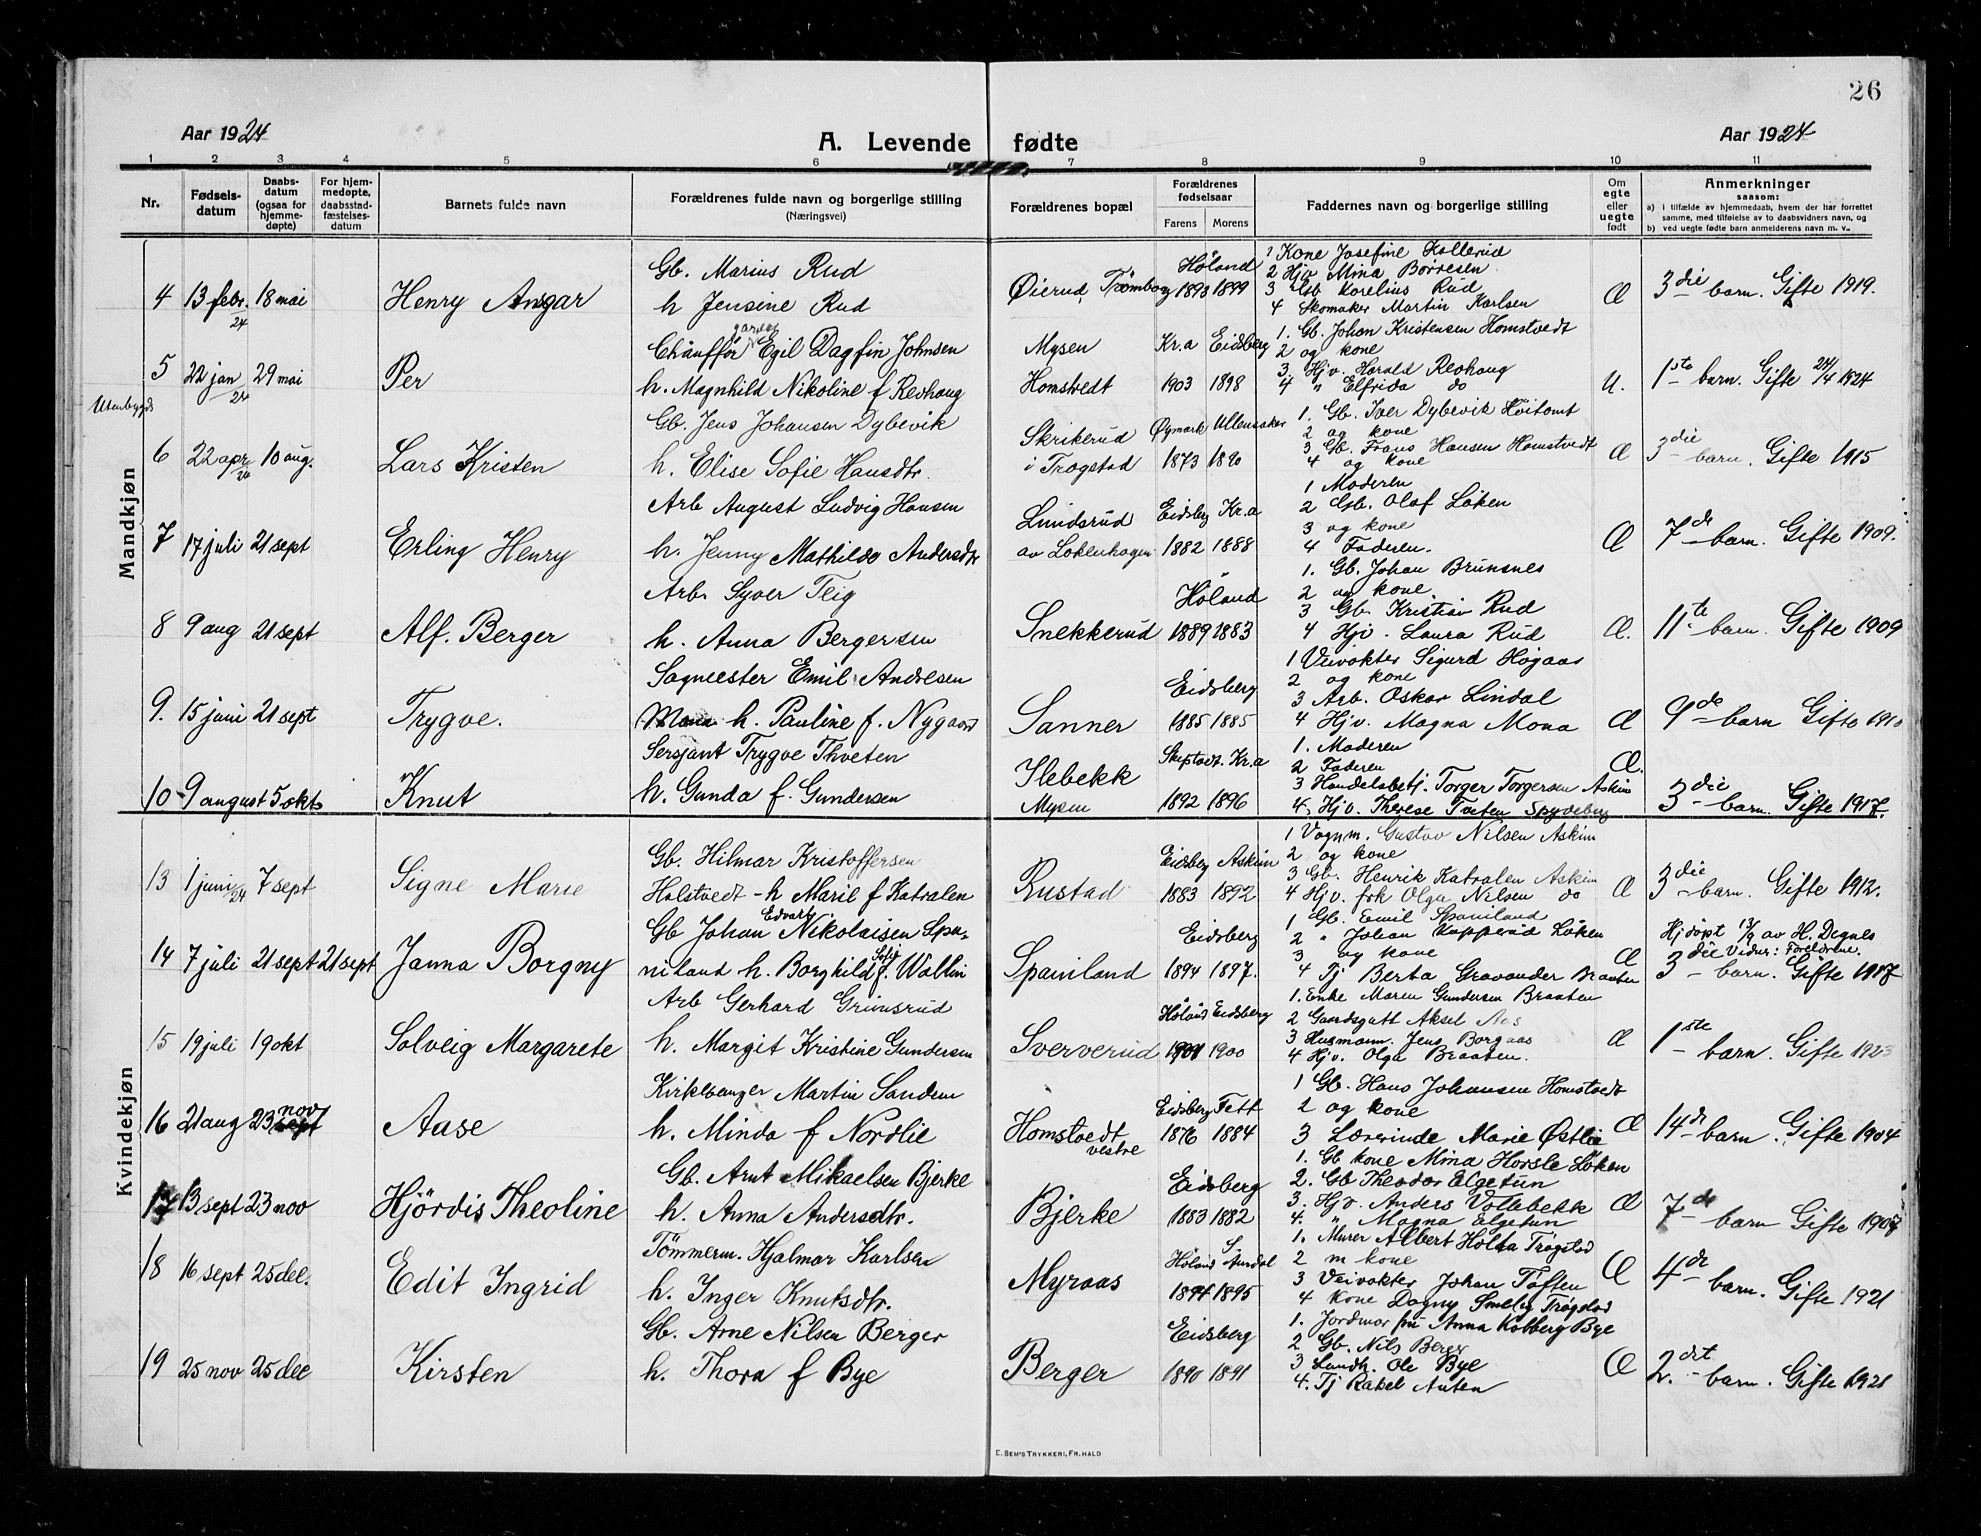 26
Aar 1924
A. Levende fødte
Aar 1924
1 2 3 4 5 6 7 8 9 10 11
Nr.
Fødsels-datum
Daabs-datum (ogsaa for hjemme-døpte)
For hjem-medøpte, daabsstad-fæstelses-datum
Barnets fulde navn
Forældrenes fulde navn og borgerlige stilling (Næringsvei)
Forældrenes bopæl
Forældrenes fødselsaar
Farens Morens
Faddernes navn og borgerlige stilling
Om egte eller uegte født
Anmerkninger saasom:
a) i tilfælde av hjemmedaab, hvem der har forrettet samme, med tilføielse av to daabsvidners navn, og
b) ved uegte fødte barn anmelderens navn m. v..
Mandkjøn
4 13 febr. 24 18 mai Henry Ansgar
Gb. Marius Rud
h Jensine Rud
Øierud, Trømborg
Høland
1893 1899
1 Kone Josefine Kollerud
2 Hjv Mina Børresen
3 Gb Korelius Rud
4 Skomaker Martin Karlsen
Æ 3die barn. Gifte 1919.
5 22 jan 24 29 mai Per
Utenbygds
Chauffør Egil Dagfin Johnsen
h. Magnhild Nikoline f Revhaug
Mysen
Homstvedt
Kr.a Eidsberg
1903 1898
1. Gb. Johan Kristensen Homstvedt
2 og kone
3. Hjv. Harald Revhaug
4 " Elfrida do
U. 1ste barn. Gifte 24/4 1924
6 22 apr 24 10 aug. Lars Kristen
Gb. Jens Johansen Dybevik
h. Elise Sofie Hansdtr.
Skrikerud
i Trøgstad
Øymark Ullensaker
1873 1890
1. Gb. Iver Dybevik Høitomt
2 og kone
3 Gb. Frans Hansen Homstvedt
4 og kone
Æ 3die barn. Gifte 1915
7 17 juli 21 sept Erling Henry
Arb August Ludvig Hansen
h. Jenny Mathilde Andersdtr
Lundsrud
av Løkenhagen
Eidsberg Kr.a
1882 1888
1 Moderen
2 Gb. Olaf Løken
3 og kone
4 Faderen.
Æ 7de barn. Gifte 1909.
8 9 aug 21 sept Alf. Berger
Arb. Syver Teig
h. Anna Bergersen
Snekkerud
Høland
1889 1883
1. Gb. Johan Brunsnes
2 og kone.
3 Gb. Kristian Rud
4 Hjv. Laura Rud
Æ. 11te barn. Gifte 1909
9. 15 juni 21 sept Trygve.
Sagmester Emil Andresen
h. Pauline f. Nygaard
Sanner
Eidsberg
1885 1885
1 Veivokter Sigurd Høgaas
2 og kone
3 Arb. Oskar Lindal
4 Hjv. Magna Mona
Æ 9de barn Gifte 1910
10 9 august 5 okt Knut
Sersjant Trygve Thveten
h. Gunda f. Gundersen
Slebekk
Mysen
Skiptvedt. Kr.a
1892 1896
1. Moderen
2 Faderen
3 Handelsbetj. Torger Torgersen Askim
4. Hjv. Therese Tveten Spydeberg
Æ. 3die barn. Gifte 1917.
Kvindekjøn
13 1 juni 24 7 sept Signe Marie
Gb. Hilmar Kristoffersen
Holstvedt - h Marie f Katralen
Rustad
Eidsberg Askim
1883 1892
1 Vognm. Gustav Nilsen Askim
2 og kone
3 Gb. Henrik Katralen Askim
4 Hjv. frk Olga Nilsen do
Æ 3die barn. Gifte 1912.
14 7 juli 21 sept 21 sept Janna Borgny
Gb Johan Edvart Nikolaisen Spa-
niland h. Borghild Sofie f. Wallin
Spaniland
Eidsberg
1894 1897.
1 Gb. Emil Spaniland
2 " Johan Kopperud Løken
3 og kone
4 Tj Berta Gravander Braaten
Æ Hjdøpt 13/9 av H. Degnes
Vidner: Foreldrene.
3die barn. Gifte 1917
15 19 juli 19 okt Solveig Margarete
Arb Gerhard Grimsrud
h. Margit Kristine Gundersen
Sververud
Høland Eidsberg
1901 1900
1. Enke Maren Gundersen Braaten
2 Gaardsgutt Aksel Aas
3 Husmann. Jens Borgaas
4 Hjv. Olga Braaten.
Æ 1ste barn. Gifte 1923
16 21 aug 23 nov Aase
Kirkesanger Martin Sandem
h. Minda f Nordlie
Homstvedt
vestre
Eidsberg Fett
1876 1884
1 Gb. Hans Johansen Homstvedt
2 og kone
3 Lærerinde Marie Østlie
Æ 14de barn. Gifte 1904
17 13 sept 23 nov Hjördis Theoline
Gb. Arnt Mikaelsen Bjerke
h. Anna Andersdtr.
Bjerke
Eidsberg
1883 1882
1. Gb kone Mina Horsle Løken
2. Gb Theodor Elgetun
3. Hjv. Anders Vollebekk
4. " Magna Elgetun
Æ 7de barn Gifte 1907
18 16 sept 25 dec. Edit Ingrid
Tømmerm. Hjalmar Karlsen
h. Inger Knutsdtr.
Myraas
Høland S. Aurdal
1894 1895
1. Murer Albert Holta Trøgstad
2 m kone
3 Veivokter Johan Toften
4 Kone Dagny Smeby Trøgstad
Æ 4de barn. Gifte 1921
19 25 nov 25 dec Kirsten
Gb. Arne Nilsen Berger
h. Thora f Bye
Berger
Eidsberg
1890 1891
1. Jordmor fru Anna Kolberg Bye
2 Gb. Nils Berger
3 Landh. Ole Bye
4. Tj Rakel Anten
Æ 2det barn. Gifte 1921
E. SEM'S TRYKKERI, FR. HALD